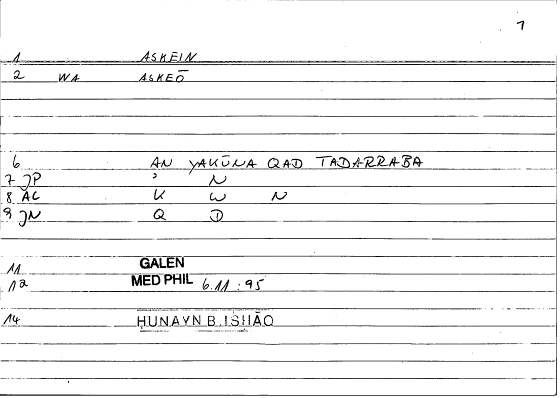 7
1 ASKEIN
2 WA ASKEŌ
6 AN YAKŪNA QAD TADARRABA
7 JP ʾ N
8 AL K W N
9 JN Q D
11 GALEN
12 MED PHIL 6.11 : 95
14 ḤUNAYN B. ISḤĀQ